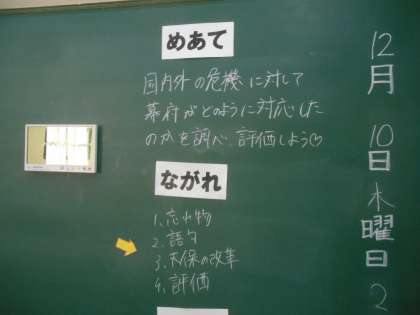 めあて
国内外の危機に対して
幕府がどのように対応した
のかを調べ、評価しよう♡
ながれ
1、忘れ物
2、語句
3、天保の改革
4、評価
12月10日木曜日2